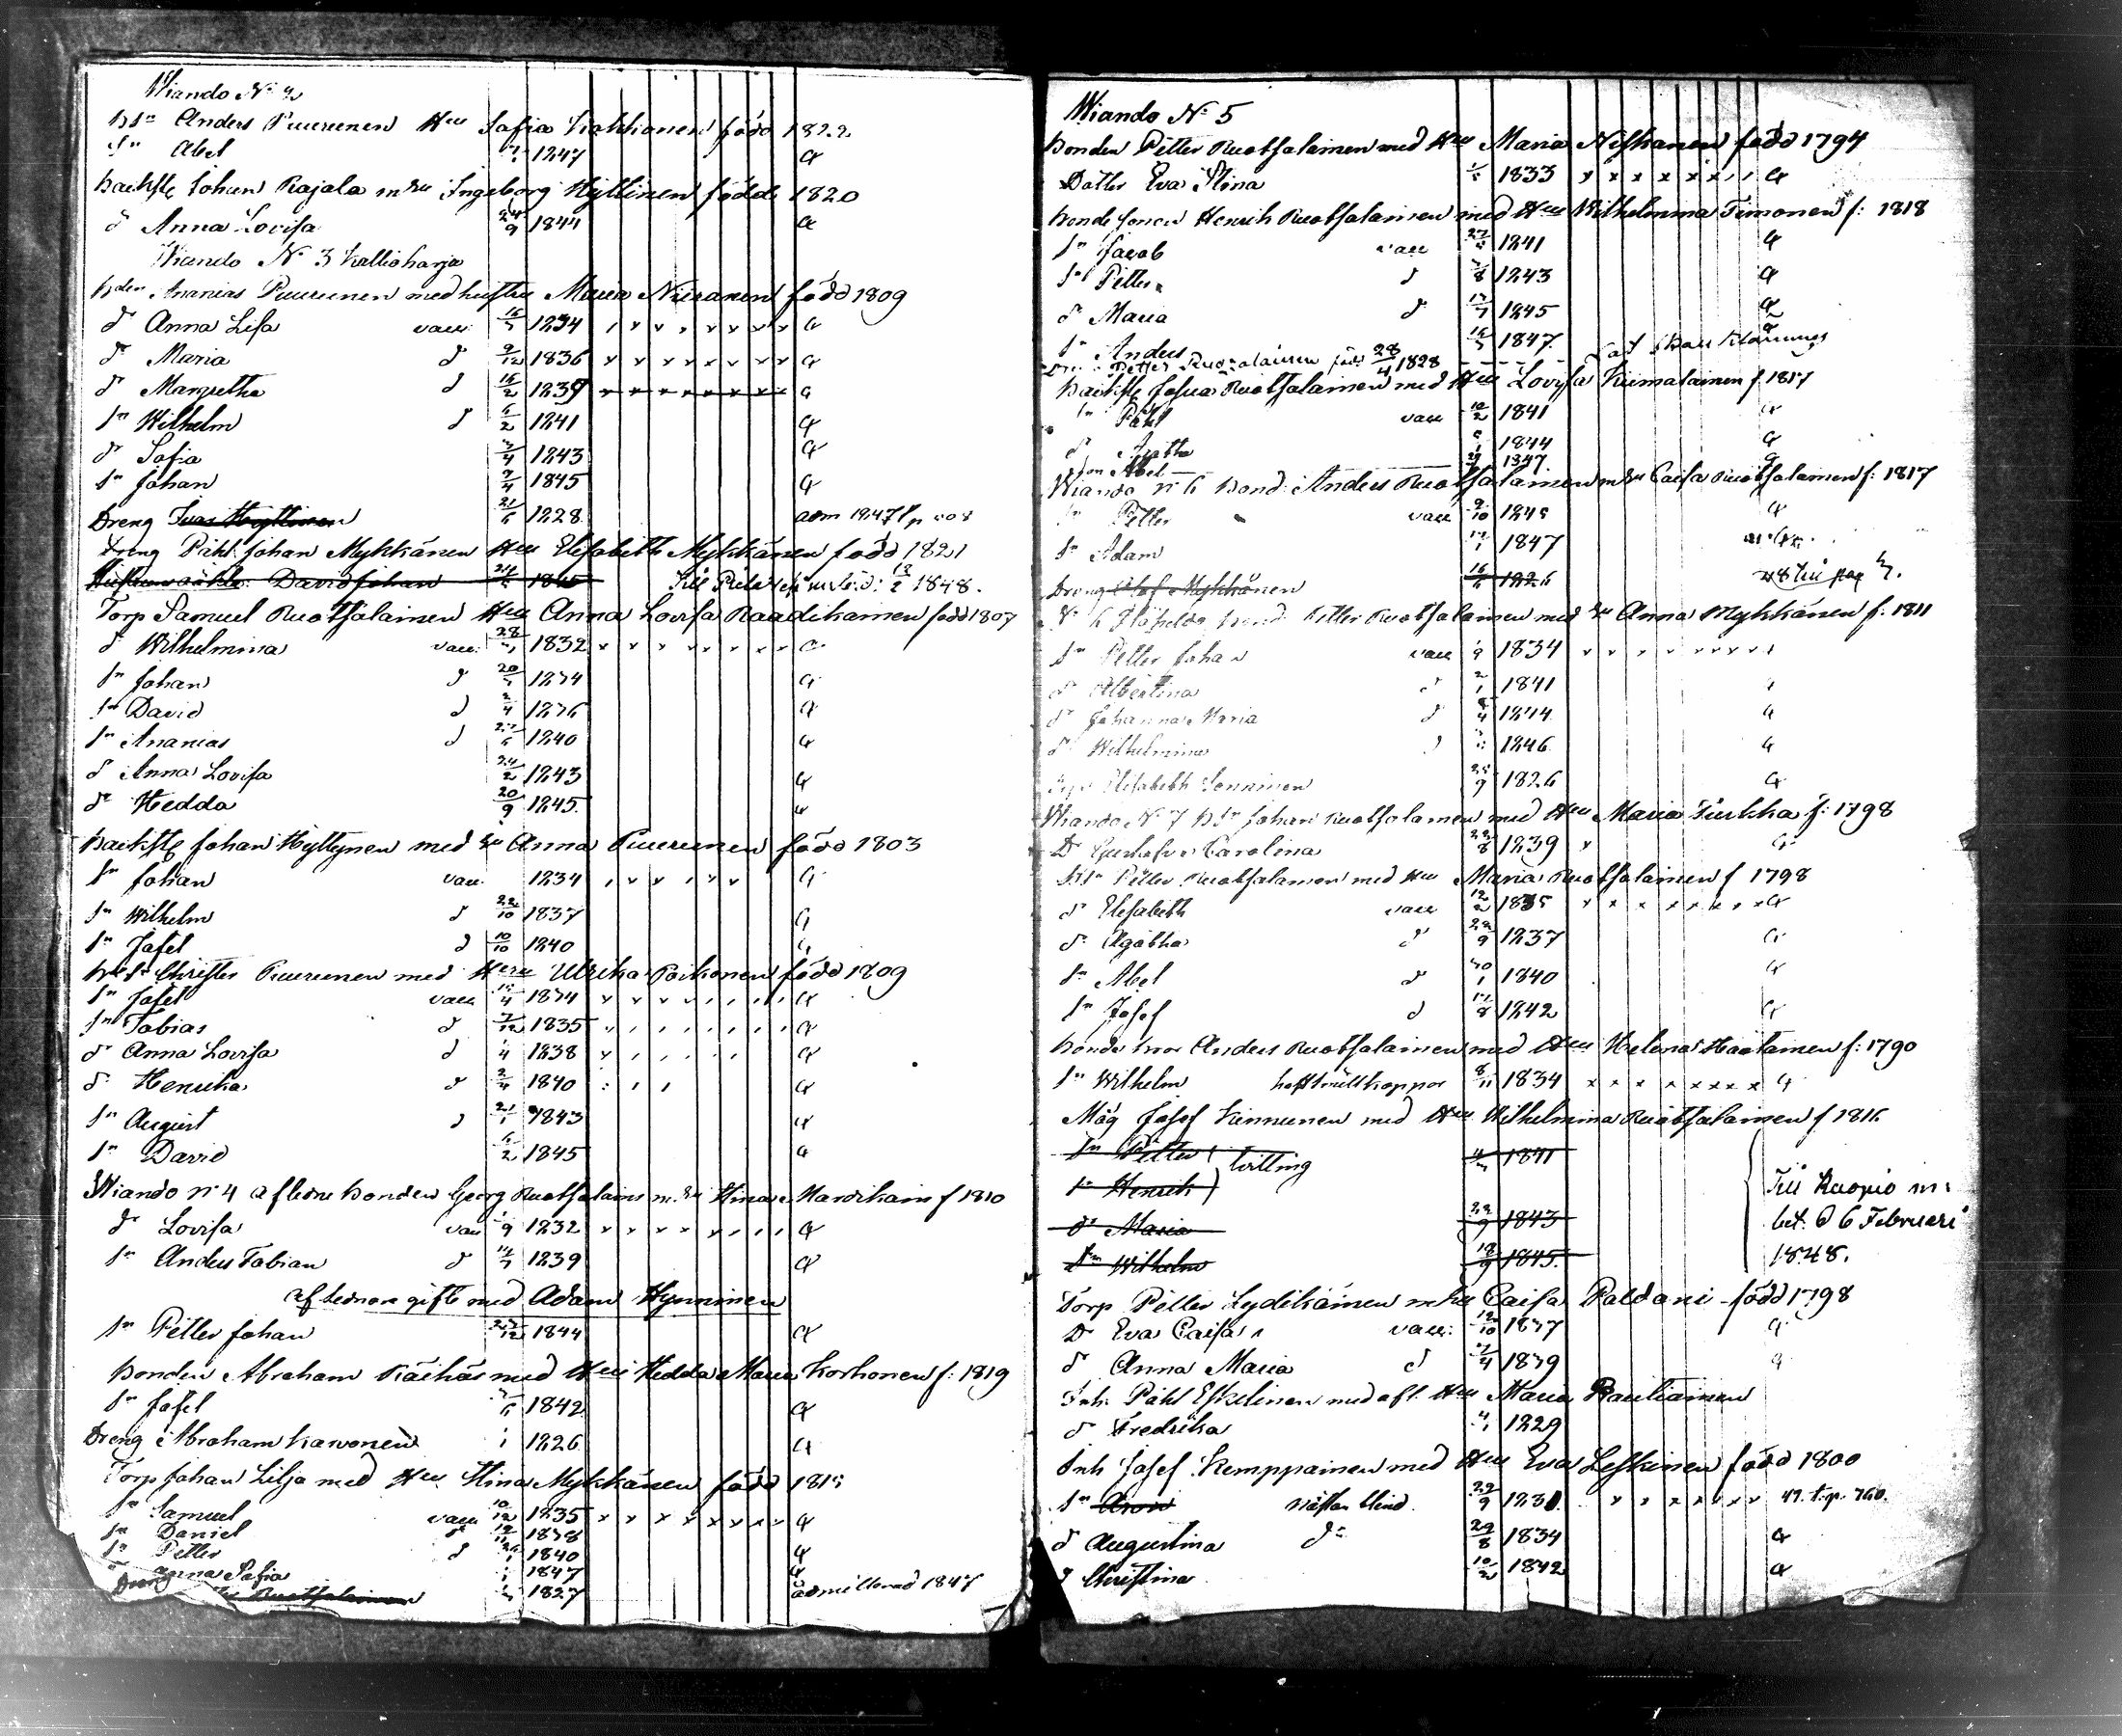 Wiando N: 2
Anders Puurunen Hu Sofia Kokkonen född 1822
sn Abel 1847 a
Johan Rajala Ingeborg Hyttinen född 1820
d Anna Lovisa 24/9 1844 a
Wiando N 3 Kallioharja
Ananias Puurunen med hustru Maria Niiranen född 1809
dr Anna Lisa vacc: 1834 a
dr Maria d 9/12 1836 a
dr Margretha d 16/2 1839 a
sn Wilhelm d 6/2 1841 a
dr Sofia 1843 a
sn Johan 1845 a
Dreng Hyttinen 1828 adm 1847
Dreng Påhl Johan Mykkänen Hu Elisabeth Mykkänen född 1821
David Johan 1848.
Torp Samuel Ruotsalainen Hu Anna Lovisa Raadikainen född 1807
d Wilhelmina vacc: 1832
sn Johan d 1834 a
sn David d 1836 a
sn Ananias d 1840 a
d Anna Lovisa 24/2 1843 a
dr Hedda 20/9 1845. a
Johan Hyttynen med Anna Puurunen född 1803
sn Johan vacc. 1834 a
sn Wilhelm d 22/10 1837 a
sn Jafet d 10/10 1840 a
Christer Puurunen med Hu Ulrika Poikonen född 1809
sn Jafet vacc 1834 a
sn Tobias d 1835 a
dr Anna Lovisa d 1838 a
d. Henrika d 1840 a
sn August d 1843 a
sn David 6/2 1845 a
Wiando n: 4 afledne bonden Georg f 1810
d Lovisa vac 1832 a
sn Anders Fabian d 1839 a
aflednan gift med Adam Hynninen
sn Petter Johan 1844 a
Bonden Abraham Räihä med Hu Hedda Maria Korhonen f: 1819
sn Jafet 1842 a
Dreng Abraham Karvonen 1826 a
Torp Johan Lilja med Hu Stina Mykkänen född
sn Samuel vacc 10/12 1835 a
sn Daniel d 1838
sn Petter d 1840 a
Anna Sofia 1847 a
Dreng Ruotsalainen 1827 admitterad 1847
Wiando N: 5
Bonden Petter Ruotsalainen med Hu Maria Niskanen född 1794
Dotter Eva Stina 1833 a
Bonde sonen Henrik Ruotsalainen med Hu Wilhelmina Timonen f: 1818
sn Jacob vacc 1841 a
sn Petter d 1843 a
dr Maria d 1845 a
sn Anders 1847. a
Petter Ruotsalainen född 28/4 1828
Josua Ruotsalainen med Hu Lovisa Kiimalainen f. 1817
sn Påhl vacc 12/2 1841 a
d Agatha 1844 a
Son Abel 1847. a
Wiando n: 6 Bond: Anders Ruotsalainen Caisa Ruotsalainen f: 1817
sn Petter vacc a
sn Adam 1847
Dreng Olof Mykkänen 1826
N: 6 Petter Ruotsalainen med Anna Mykkänen f: 1811
sn Petter Johan vacc 1834
d Albertina d 1841 a
dr Johanna Maria d 1844 a
d Wilhelmina d 1846 a
Elisabeth 1826 a
Wiando N: 7 Johan Ruotsalainen med Hu Maria f: 1798
Dr Carolina 22/8 1839 a
Petter Ruotsalainen med Hu Maria Ruotsalainen f 1798
dr Elisabeth vacc 12/2 1835 a
d. Agatha d 22/9 1837 a
sn Abel d 1840 a
sn Josef d 1842 a
Anders Ruotsalainen med Hu Helena Haatainen f: 1790
sn Wilhelm haft mittkoppor 8/11 1834 a
Måg Josef Kinnunen med Hu Wilhelmina Ruotsalainen f 1816
sn Petter 1841
sn Henrik } tvilling Till Kuopio m:
dr Maria 22/9 1843 bet. d 6 Februari
sn Wilhelm 1845. 1848.
Torp Petter Lydikäinen Caisa Paldani född 1798
Dr Eva Caisa vacc: 12/10 1837 a
d Anna Maria d 1839 a
Inh: Påhl Eskelinen med afl. Hu Maria Rautiainen
d Fredrika 1829
Inh Josef Kemppainen med Hu Eva Leskinen född 1800
sn Aron nästan blind 22/9 47. t.p. 760.
d Augustina d 29/8 1834 a
d Christina 10/2 1842 a